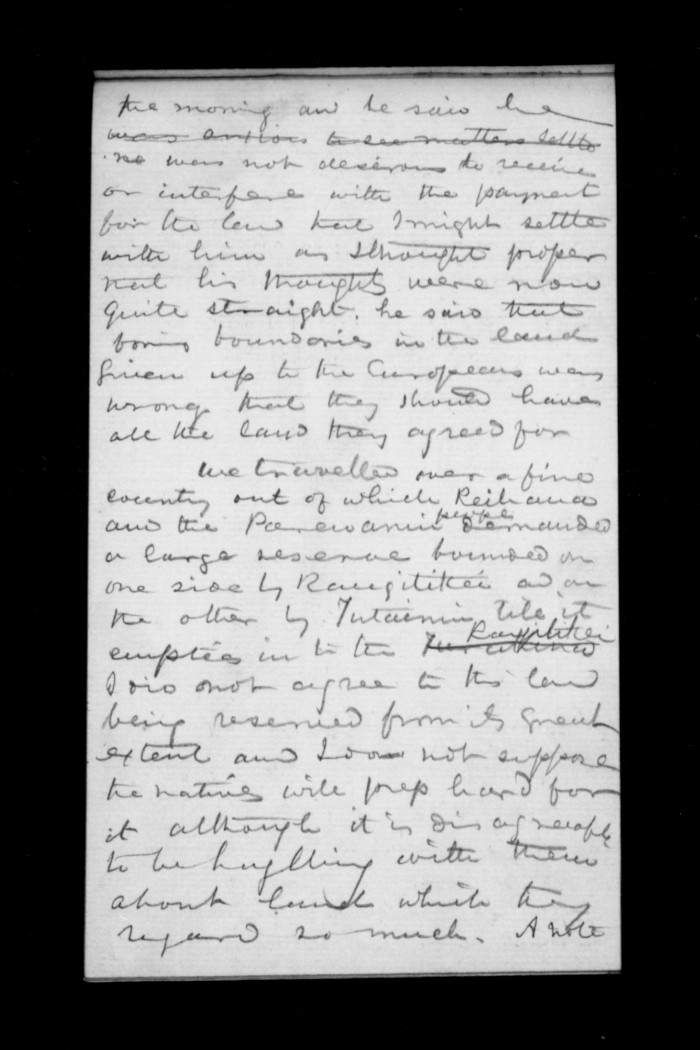 the morning and he said he
was anxious to see matters settle
he was not desirous to receive
or interfere with the payment
for the land that I might settle
with him as I thought proper
that his thoughts were now
quite straight. he said that
boundaries in the land
given up to the Europeans was
wrong that they should have
all the land they agreed for
we travelled over a fine
country out of which Reihana
and the people demanded
a large reserve bounded on
one side by Rangitikei and on
the other by till it
empties in to the Rangitikei
I did not agree to this land
being reserved from its great
extent and I do not suppose
the natives will press hard for
it although it is disagreeable
to be haggling with them
about land which they
regard so much. A note